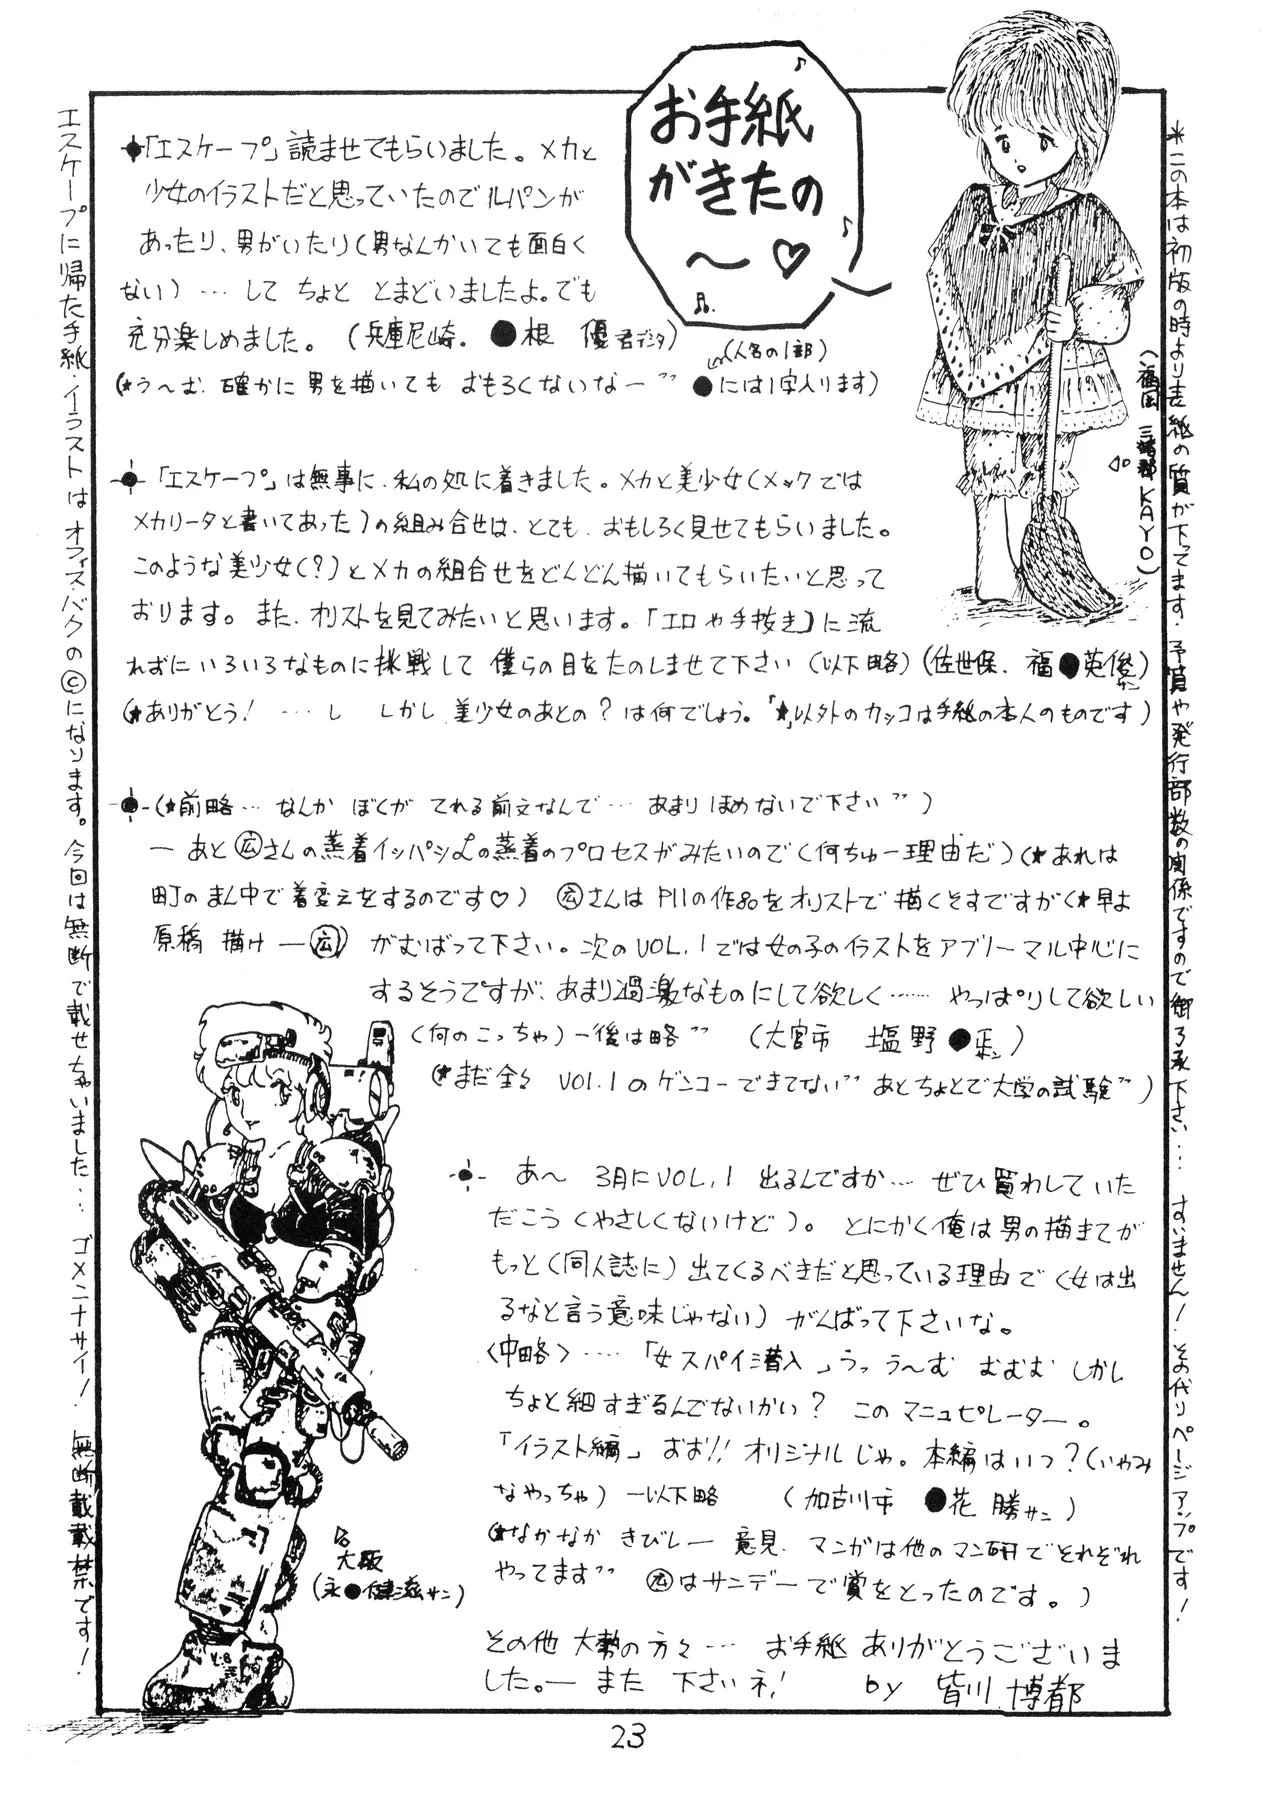 お手紙
がきたの
〜♡
「エスケープ」読ませてもらいました。メカと
少女のイラストだと思っていたのでルパンが
あったり、男がいたり(男なんかいても面白く
ない)…してちょととまどいましたよ。でも
充分楽しめました。(兵庫尼崎.●根 優君デシタ)
(人名の1部)
(★う〜む、確かに男を描いてもおもろくないなー〃 ●には1字入ります)
「エスケープ」は無事に、私の処に着きました。メカと美少女(メックでは
メカリータと書いてあった)の組み合せは、とても、おもしろく見せてもらいました。
このような美少女(?)とメカの組合せをどんどん描いてもらいたいと思って
おります。また、オリストを見てみたいと思います。「エロや手抜き」に流
れずにいろいろなものに挑戦して僕らの目をたのしませて下さい(以下略)(佐世保、福●英俊サン)
(★ありがとう!…し しかし美少女のあとの?は何でしょう。「★」以外のカッコは手紙の本人のものです)
(★前略…なんかぼくがてれる前文なんで…あまりほめないで下さい〃)
ーあと㊁さんの蒸着イッパシ
の蒸着のプロセスがみたいので(何ちゅー理由だ)(★あれは
町のまん中で着変えをするのです♡) さんはPIIの作品をオリストで描くそすですが(★早よ
原稿描けー) がむばって下さい。次のVOL.1では女の子のイラストをアブノーマル中心に
するそうですが、あまり過激なものにして欲しく……やっぱりして欲しい
(何のこっちゃ)ー後は略〃 (大宮市 塩野●
)
(★まだ全々VOL.1のゲンコーできてない〃あとちょとで大学の試験〃)
あ〜 3月にVOL.1出るんですか…ぜひ買わしていた
だこう(やさしくないけど)。とにかく俺は男の描きてが
もっと(同人誌に)出てくるべきだと思っている理由で(女は出
るなと言う意味じゃない)がんばって下さいな。
(中略)……「女スパイ潜入」うっう〜む むむむ しかし
ちょと細すぎるんでないかい? このマニュピレーター。
「イラスト編」おお!!オリジナルじゃ。本編はいつ?(いやみ
なやっちゃ)ー以下略 (加古川市 ●花 勝サン)
(★なかなかきびしー意見、マンガは他のマン研でそれぞれ
やってます〃 はサンデーで賞をとったのです。)
その他大勢の方々…お手紙ありがとうございま
した。ーまた下さいネ! by 皆川博都
大阪
(永●健滋サン)
KAYO)
*この本は初版の時より表紙の質が下ってます.予算や発行部数の関係ですので御了承下さい…すいません!.その代りページアップです!
エスケープに帰た手紙・イラストはオフィス・バクの©になります。今回は無断で載せちゃいました…ゴメンナサイ!無断載載禁です!
23